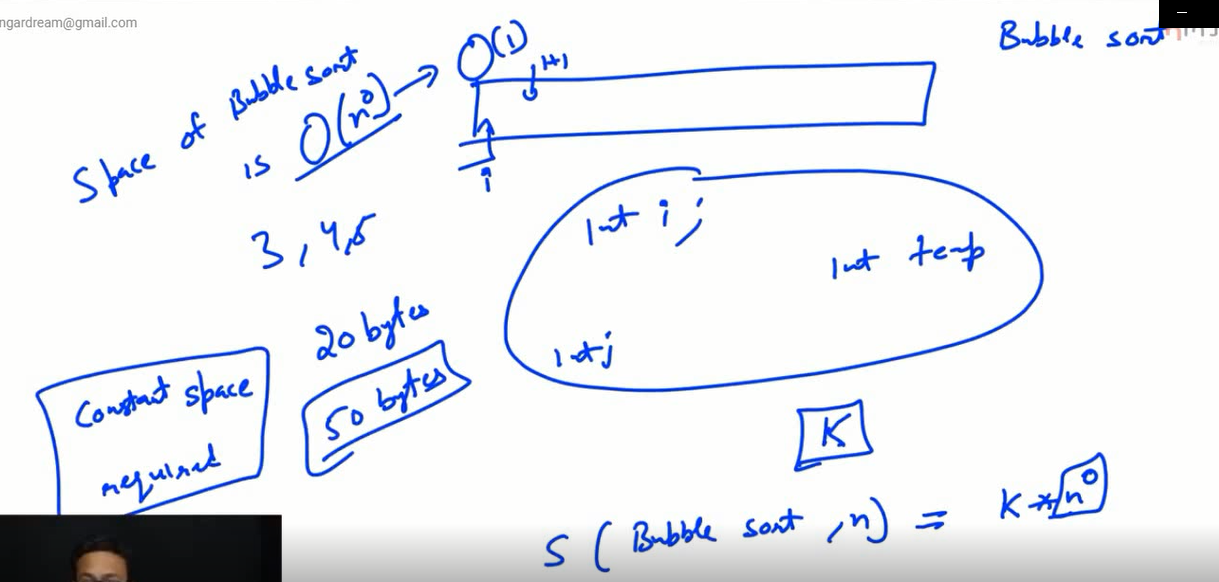 ngardream@gmail.com
Bubble sort
Space of Bubble sort
is O(n⁰) → O(1)
i+1
i
3, 4, 5
int i;
int temp
int j
20 bytes
50 bytes
Constant space
required
K
S ( Bubble sort , n) = K * n⁰